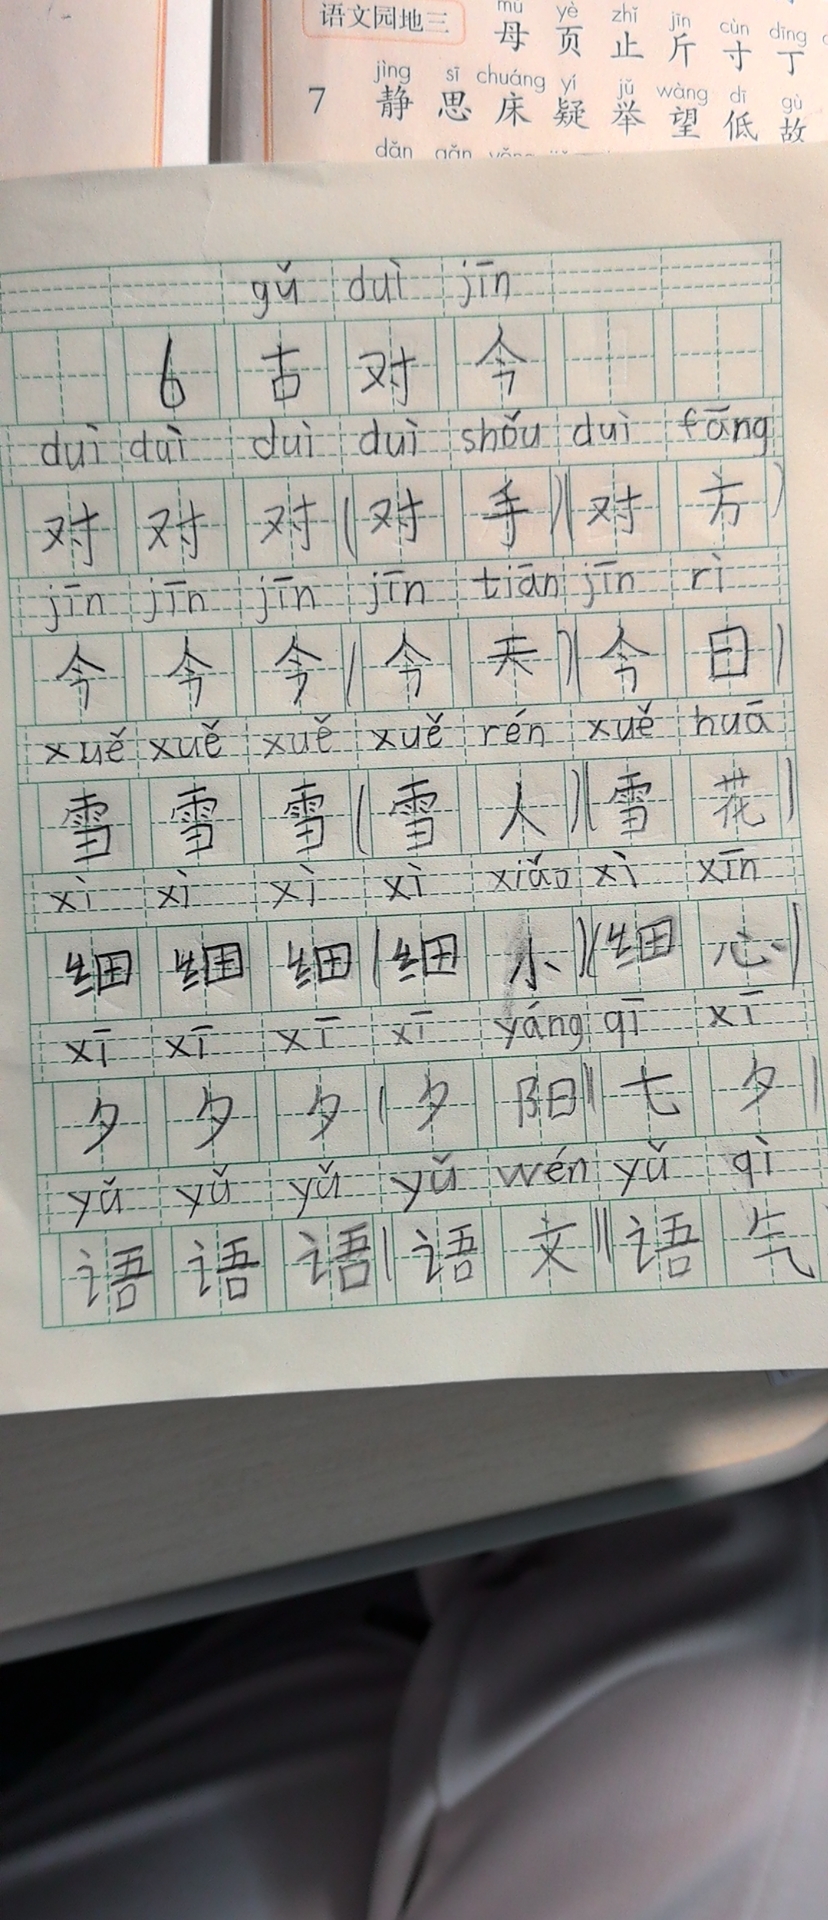 mǔ yè zhǐ jīn cùn dīng
语文园地三 母 页 止 斤 寸 丁
jìng sī chuáng yí jǔ wàng dī gù
7 静 思 床 疑 举 望 低 故
dǎn gǎn
gǔ duì jīn
6 古 对 今
duì duì duì duì shǒu duì fāng
对 对 对(对 手)(对 方)
jīn jīn jīn jīn tiān jīn rì
今 今 今(今 天)(今 日)
xuě xuě xuě xuě rén xuě huā
雪 雪 雪(雪 人)(雪 花)
xì xì xì xì xiǎo xì xīn
细 细 细(细 小)(细 心)
xī xī xī xī yáng qī xī
夕 夕 夕(夕 阳)(七 夕)
yǔ yǔ yǔ yǔ wén yǔ qì
语 语 语(语 文)(语 气